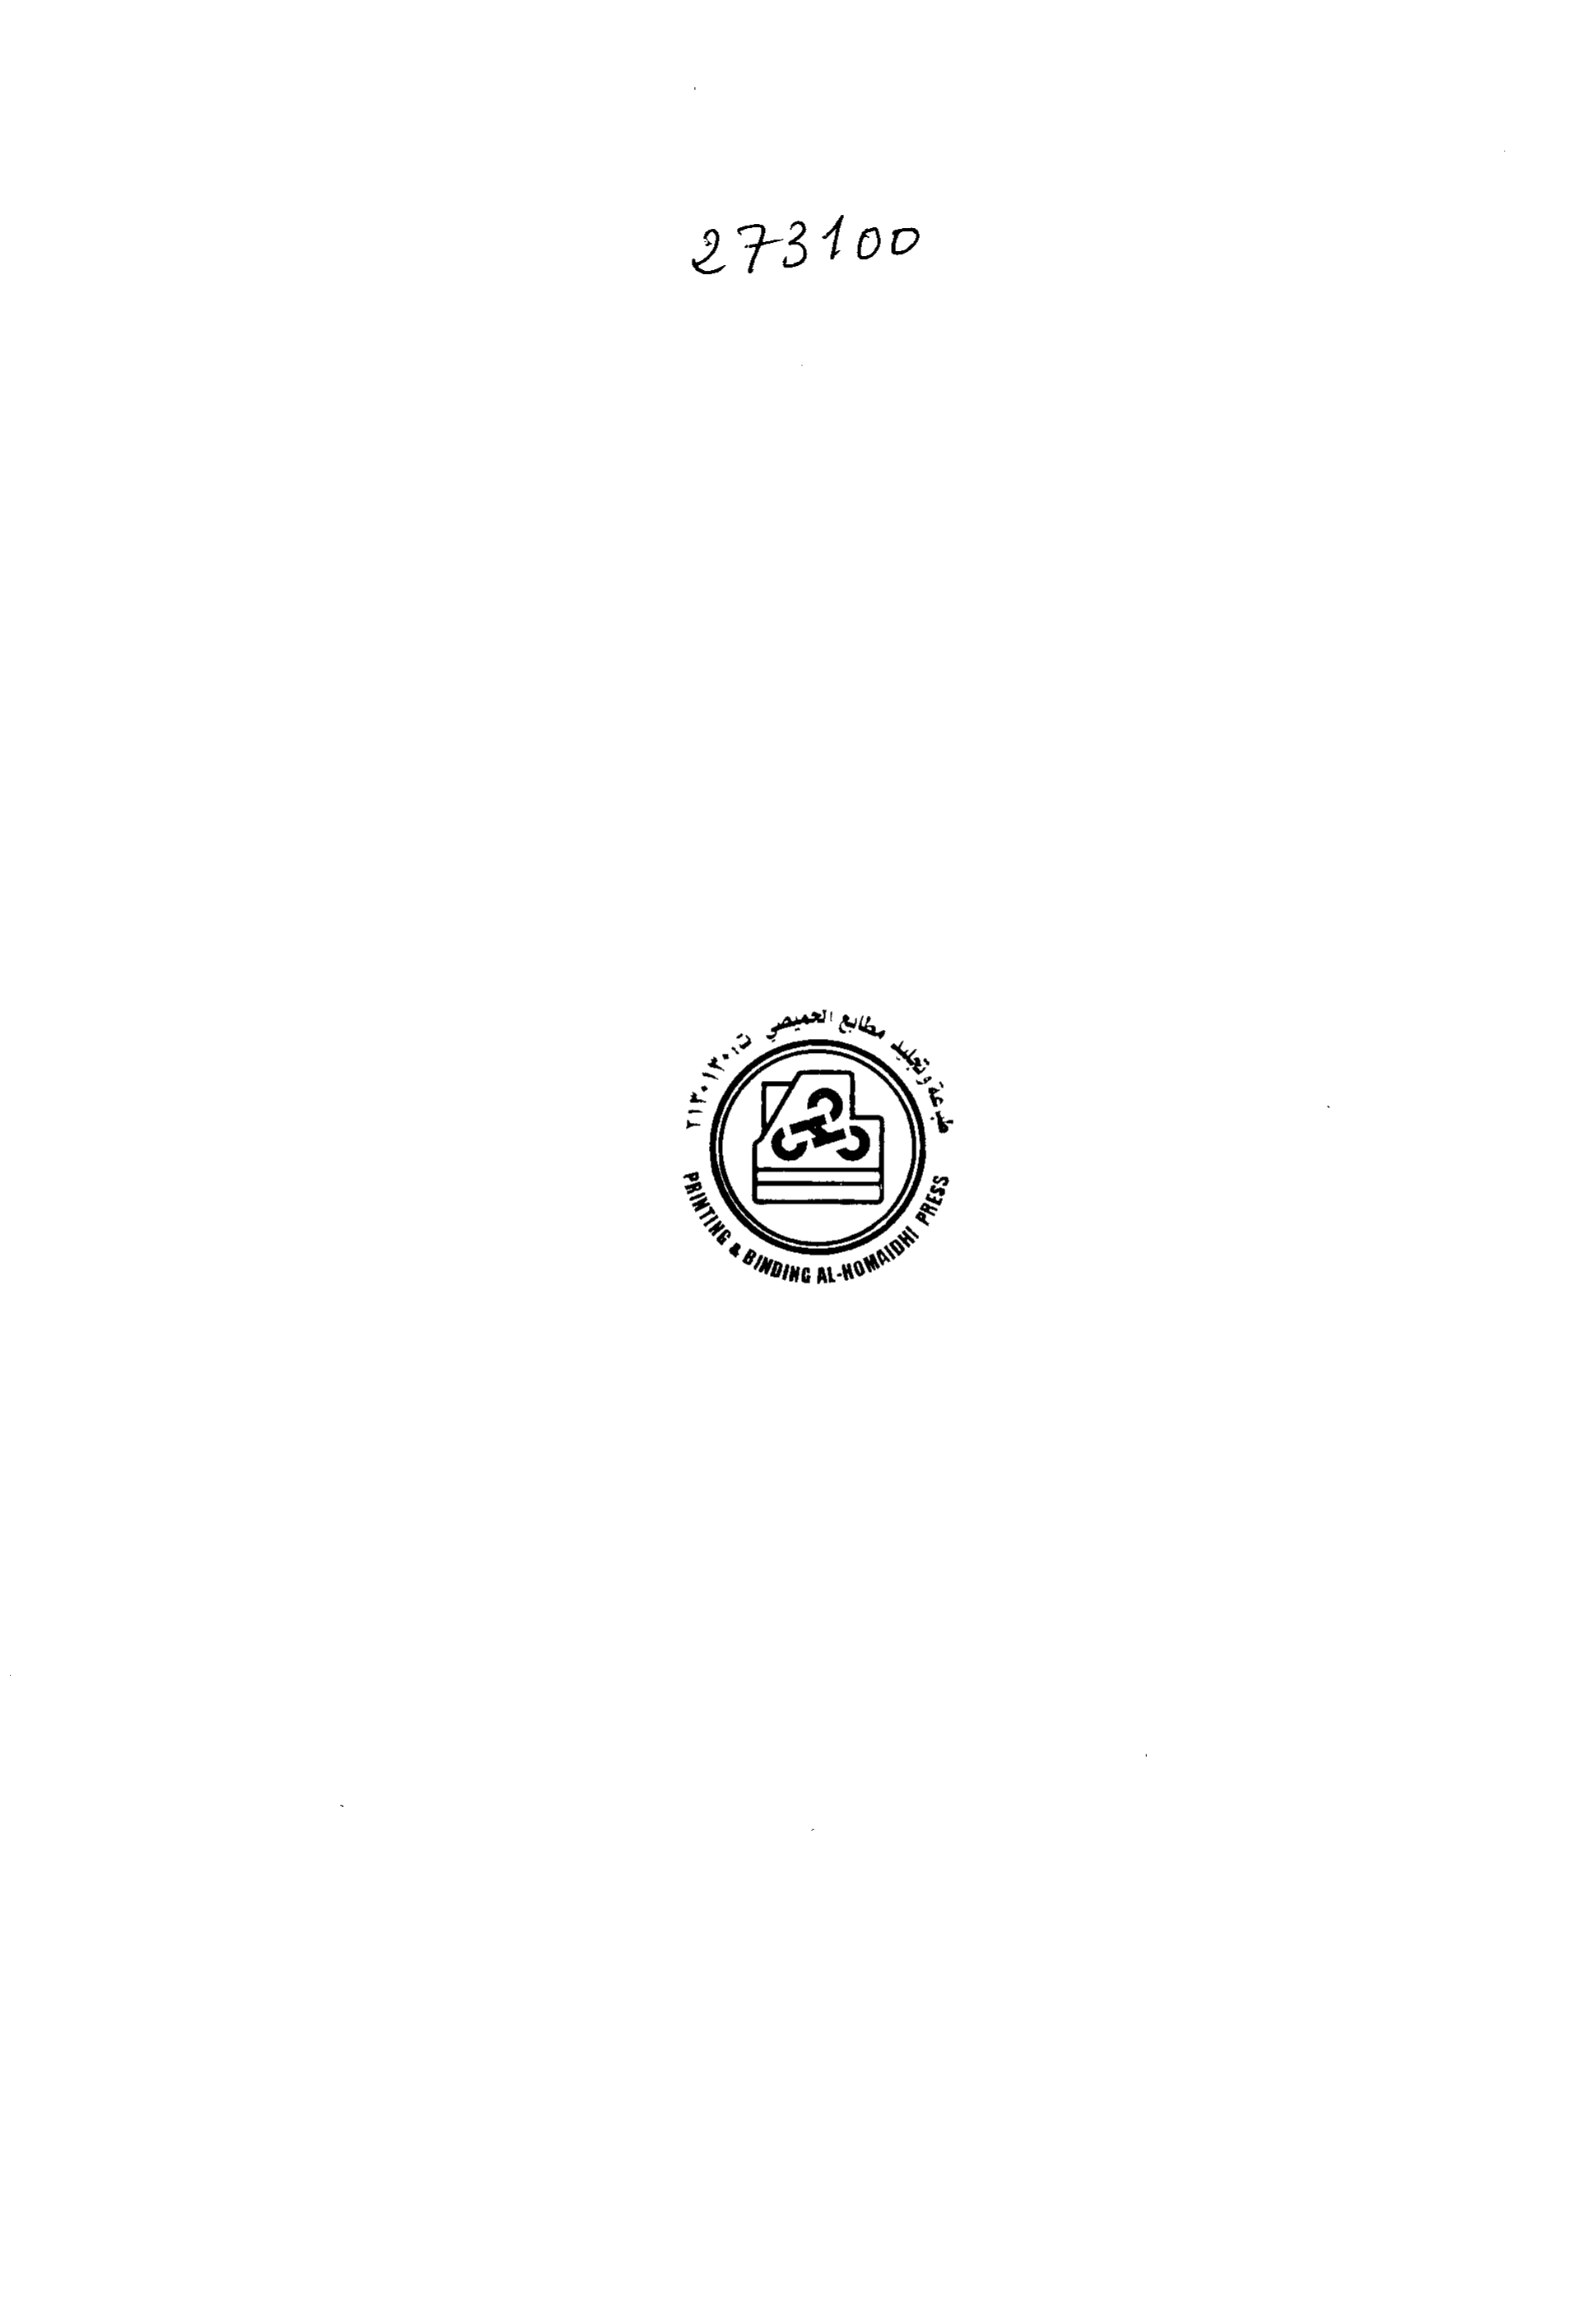 273100
طباعة وتجليد مطابع الحميضي ت:
PRINTING & BINDING AL-HOMAIDHI PRESS